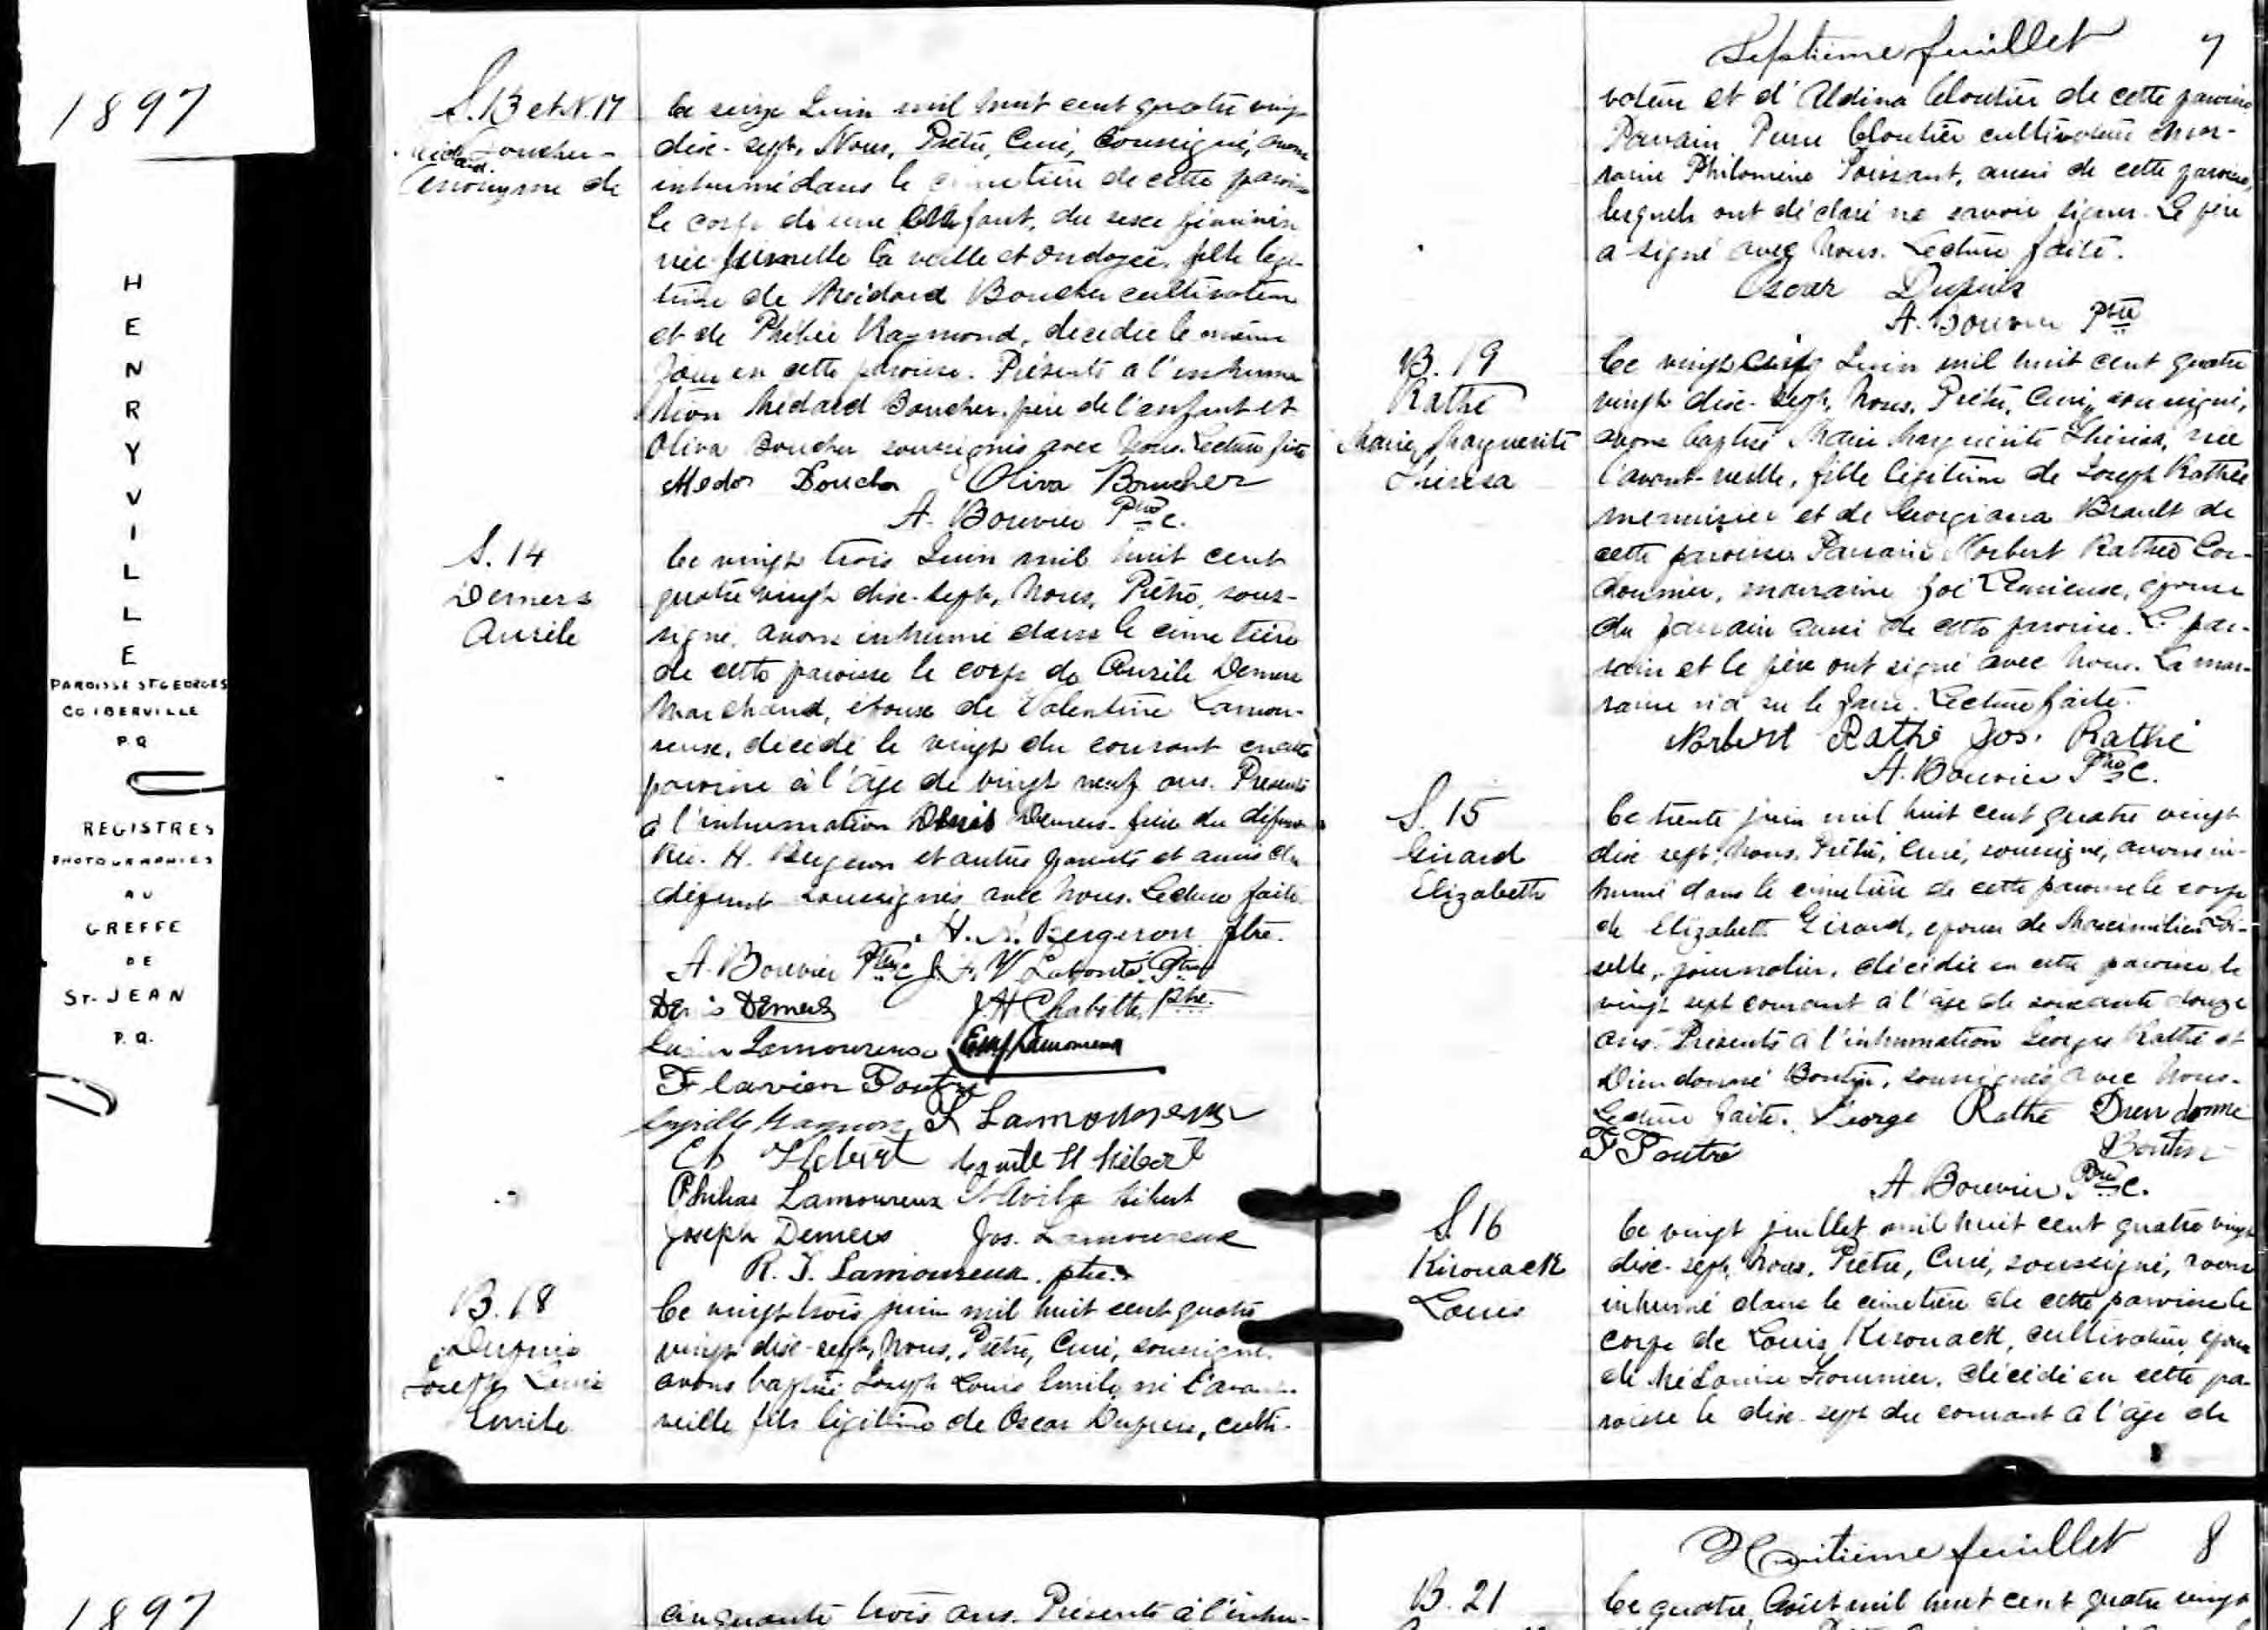 1897
HENRYVILLE
PAROISSE ST GEORGES
CO IBERVILLE
P.Q
REGISTRES
PHOTOGRAPHIES
AU
GREFFE
DE
ST-JEAN
P.Q.
1897
S. 13 et N. 17
Boucher
anonyme de
Ce seize Juin mil huit cent quatre vingt
dix-sept, Nous, Prêtre, Curé, soussigné, avons
inhumé dans le cimetière de cette paroisse
le corps d'une enfant, du sexe féminin
née la veille et ondoyée, fille légi-
time de Médard Boucher cultivateur
et de Phébée Raymond, décédée le même
jour en cette paroisse. Présents à l'inhuma
tion Médard Boucher, père de l'enfant et
Oliva Boucher soussignés avec Nous. Lecture faite
Medor Boucher Oliva Boucher
A. Bouvier Ptre C.
S. 14
Demers
Aurèle
Ce vingt trois Juin mil huit cent
quatre vingt dix-sept, Nous, Prêtre, sous-
signé, avons inhumé dans le cimetière
de cette paroisse le corps de Aurèle Demers
Marchand, époux de Valentine Lamou-
reuse, décédé le vingt du courant en cette
paroisse à l'âge de vingt neuf ans. Présents
à l'inhumation Denis Demers frère du défunt
Rev. H. Bergeron et autres parents et amis du
défunt soussignés avec Nous. Lecture faite
H. N. Bergeron ptre.
A. Bouvier Ptre C J. F. V. Labonté Ptre
Denis Demers J. H Chabotte, Ptre.
Lamoureuse Lamoureux
Flavien Poutré
Cyrille Gagnon L Lamoureux
Ch Hébert H Hébert
Philias Lamoureux Avila Hébert
Joseph Demers Jos. Lamoureux
R. J. Lamoureux, ptre.
B. 18
Dupuis
Joseph Louis
Emile
Ce vingt trois juin mil huit cent quatre
vingt dix-sept, Nous, Prêtre, Curé, soussigné
avons baptisé Joseph Louis Emile né l'avant-
veille fils légitime de Oscar Dupuis, culti-
Septième feuillet 7
vateur et d'Aldina Cloutier de cette paroisse
Parrain Pierre Cloutier cultivateur Mar-
raine Philomène Poissant, aussi de cette paroisse,
lesquels ont déclaré ne savoir signer. Le père
a signé avec Nous. Lecture faite.
Oscar Dupuis
A. Bouvier Ptre
B. 19
Rathé
Marie Marguerite
Thérésa
Ce vingt cinq Juin mil huit cent quatre
vingt dix-sept, Nous, Prêtre, Curé, soussigné,
avons baptisé Marie Marguerite Thérésa, née
l'avant-veille, fille légitime de Joseph Rathé
menuisier et de Georgiana Brault de
cette paroisse Parrain Norbert Rathé Cor-
donnier, marraine Zoé Lemieuse, épouse
du parrain aussi de cette paroisse. Le par-
rain et le père ont signé avec Nous. La mar-
raine n'a su le faire. Lecture faite.
Norbert Rathé Jos. Rathé
A. Bouvier Ptre C.
S. 15
Girard
Elizabeth
Ce trente juin mil huit cent quatre vingt
dix sept, Nous, Prêtre, Curé, soussigné, avons in-
humé dans le cimetière de cette paroisse le corps
de Elizabeth Girard, épouse de Maximilien Loi-
selle, journalier, décédée en cette paroisse le
vingt sept courant à l'âge de soixante douze
ans. Présents à l'inhumation Georges Rathé et
Dieudonné Boutin, soussignés avec Nous.
Lecture faite. George Rathé Dieudonné
F Poutré Boutin
A. Bouvier Ptre C.
S. 16
Kirouack
Louis
Ce vingt juillet mil huit cent quatre vingt
dix-sept, Nous, Prêtre, Curé, soussigné, avons
inhumé dans le cimetière de cette paroisse le
corps de Louis Kirouack, cultivateur, époux
de Mélanise Fournier, décédé en cette pa-
roisse le dix-sept du courant à l'âge de
cinquante trois ans. Présents à l'inhu-
Huitième feuillet 8
B. 21
Ce quatre Août mil huit cent quatre vingt